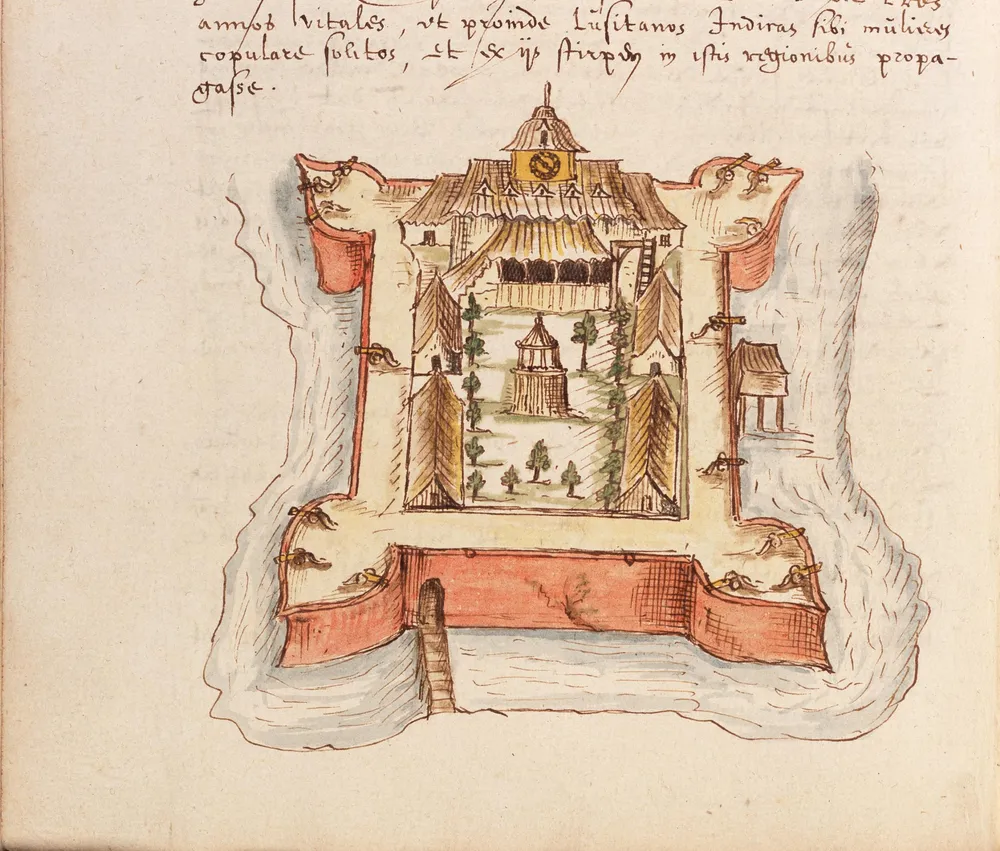 annos vitales, et proinde Lusitanos Indicas sibi mulieres
copulare solitos, et ex ijs stirpem in istis regionibus propa-
gasse.